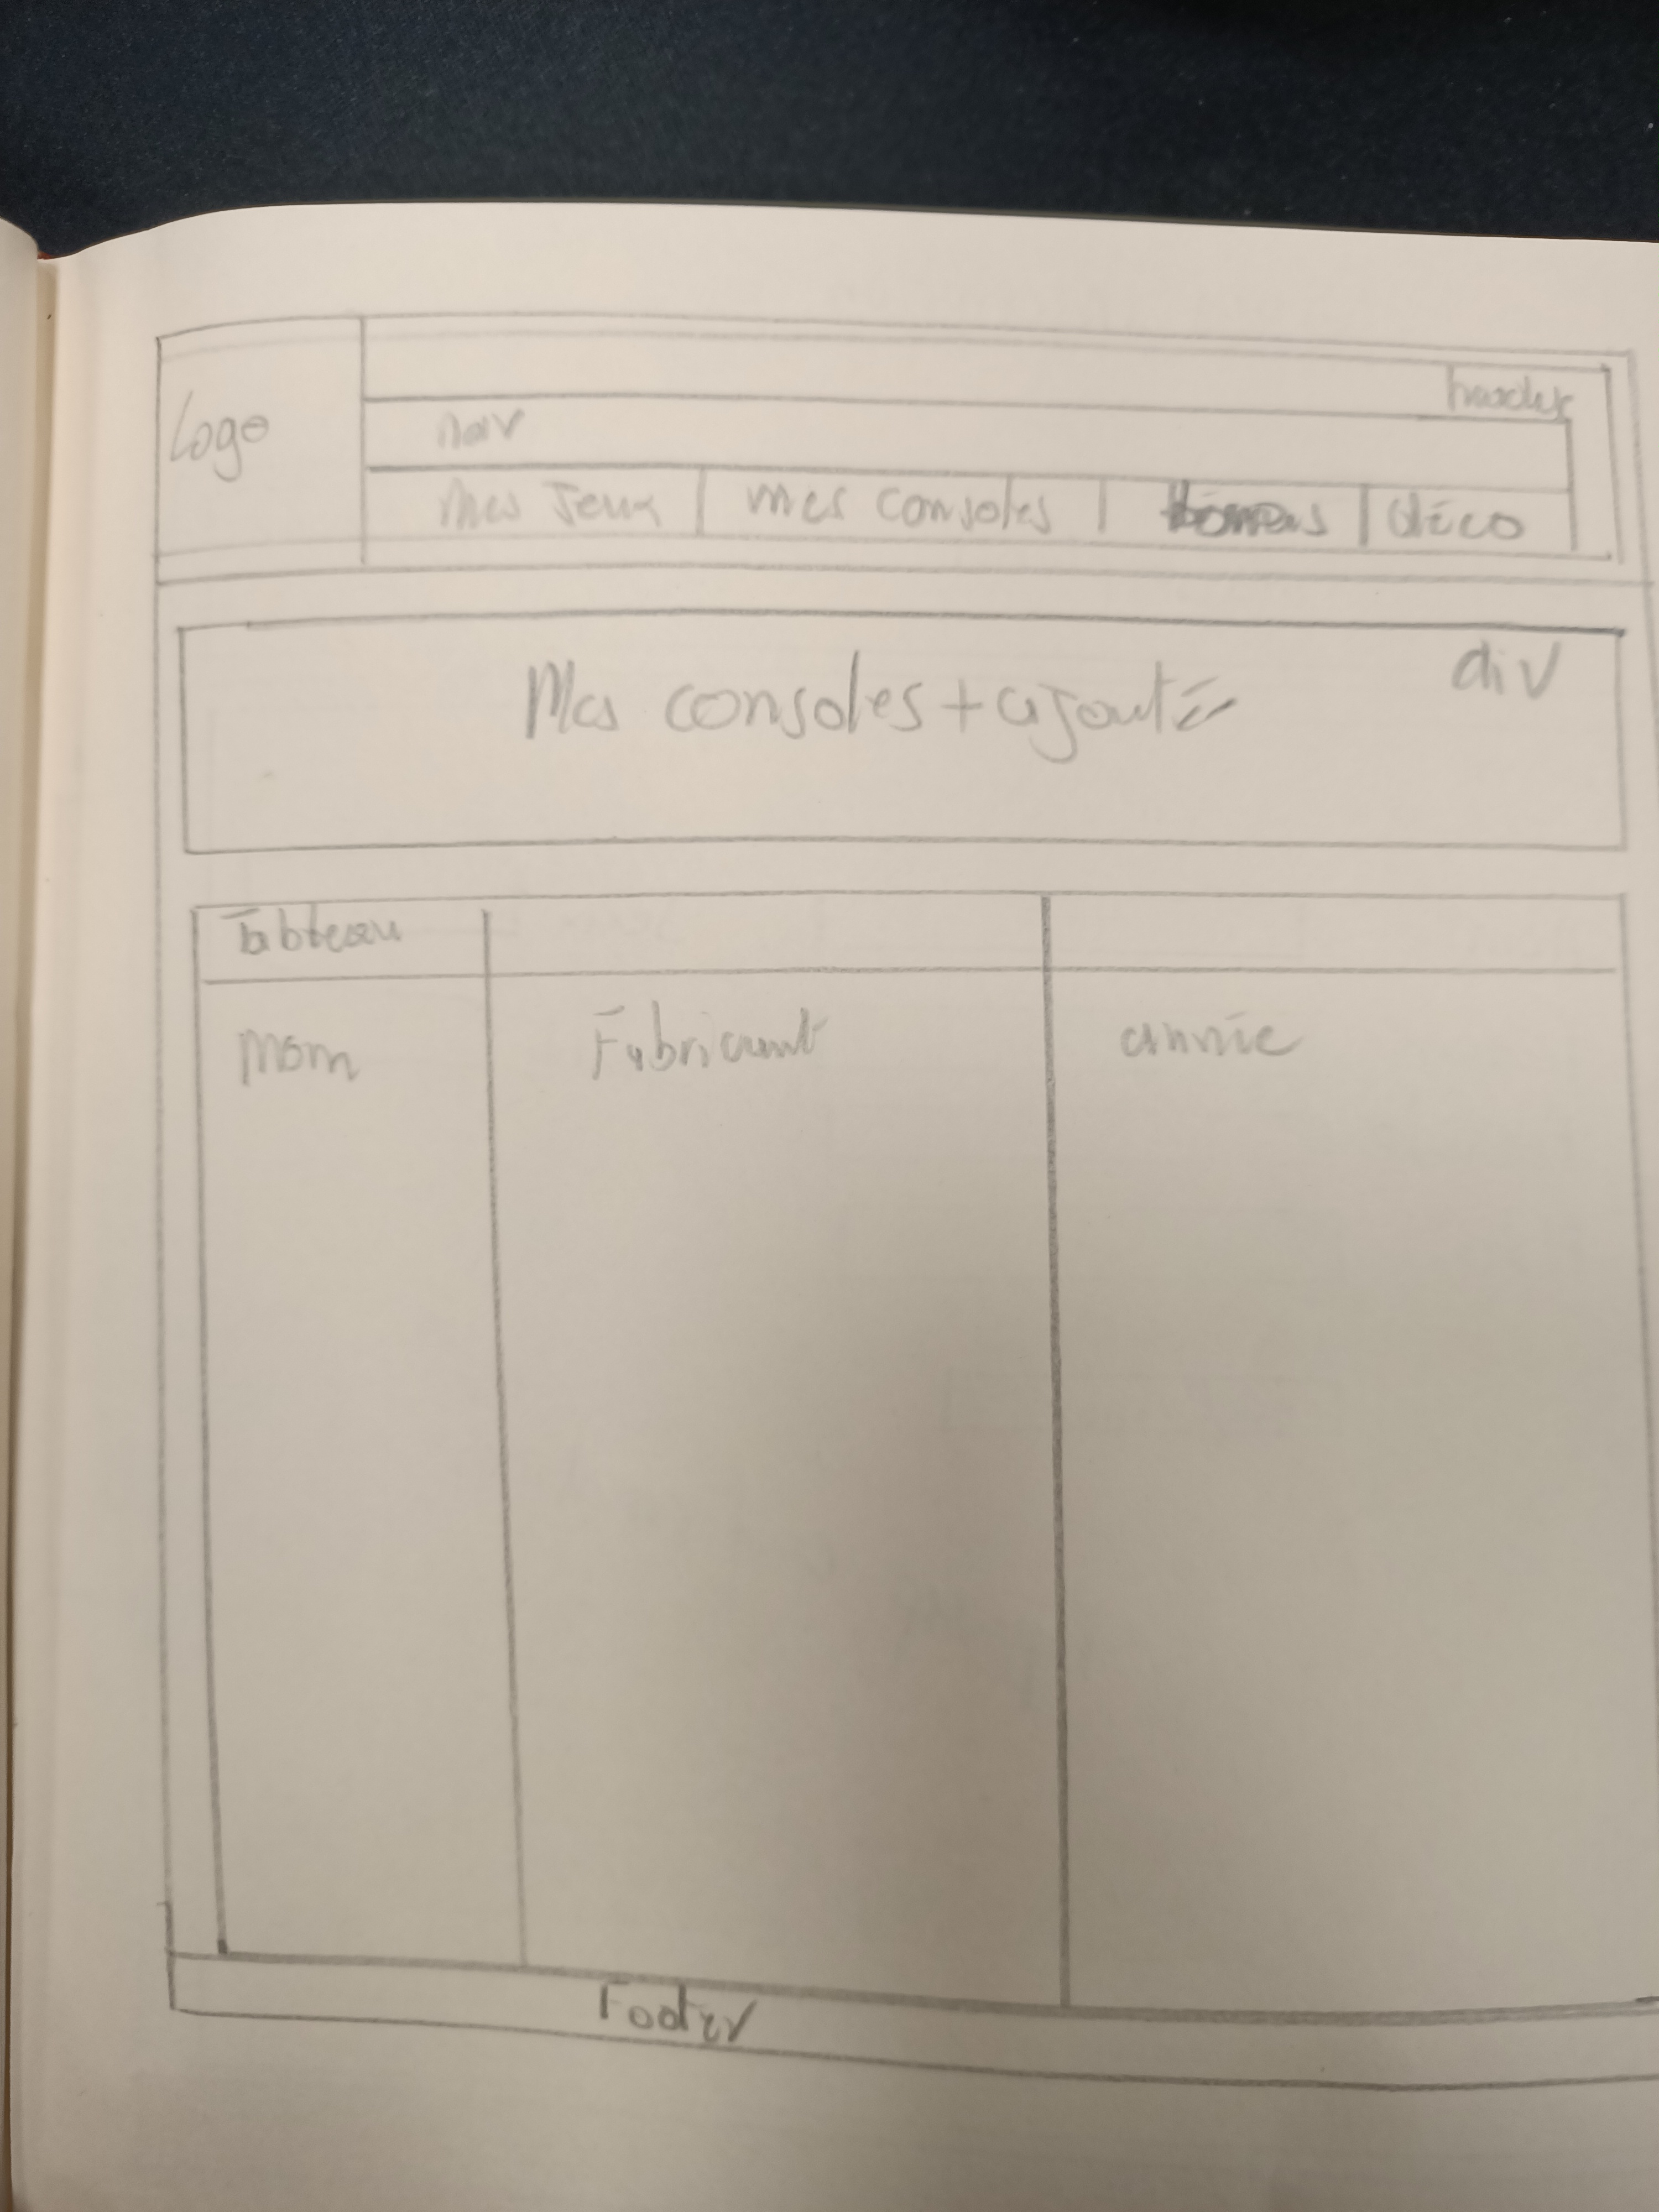 header
Logo
nav
Mes Jeux mes consoles déco
div
Mes consoles + ajouté
Tableau
nom Fabricant année
Footer